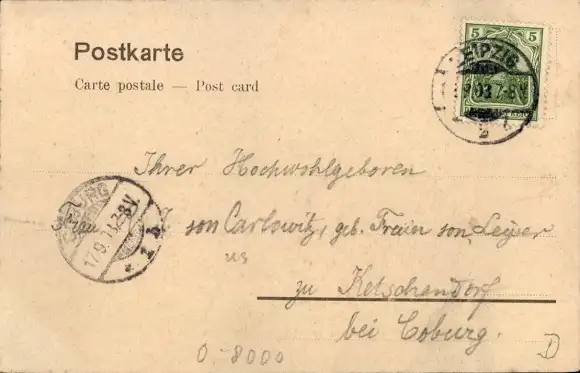 Postkarte
Carte postale — Post card
5 5
LEIPZIG
03 7-8V.
2
Ihrer Hochwohlgeboren
Frau von Carlowitz, geb. Freiin von Leyser
COBURG
17.9.03.7-8V.
1
us
zu Ketschendorf
bei Coburg.
0-8000
D